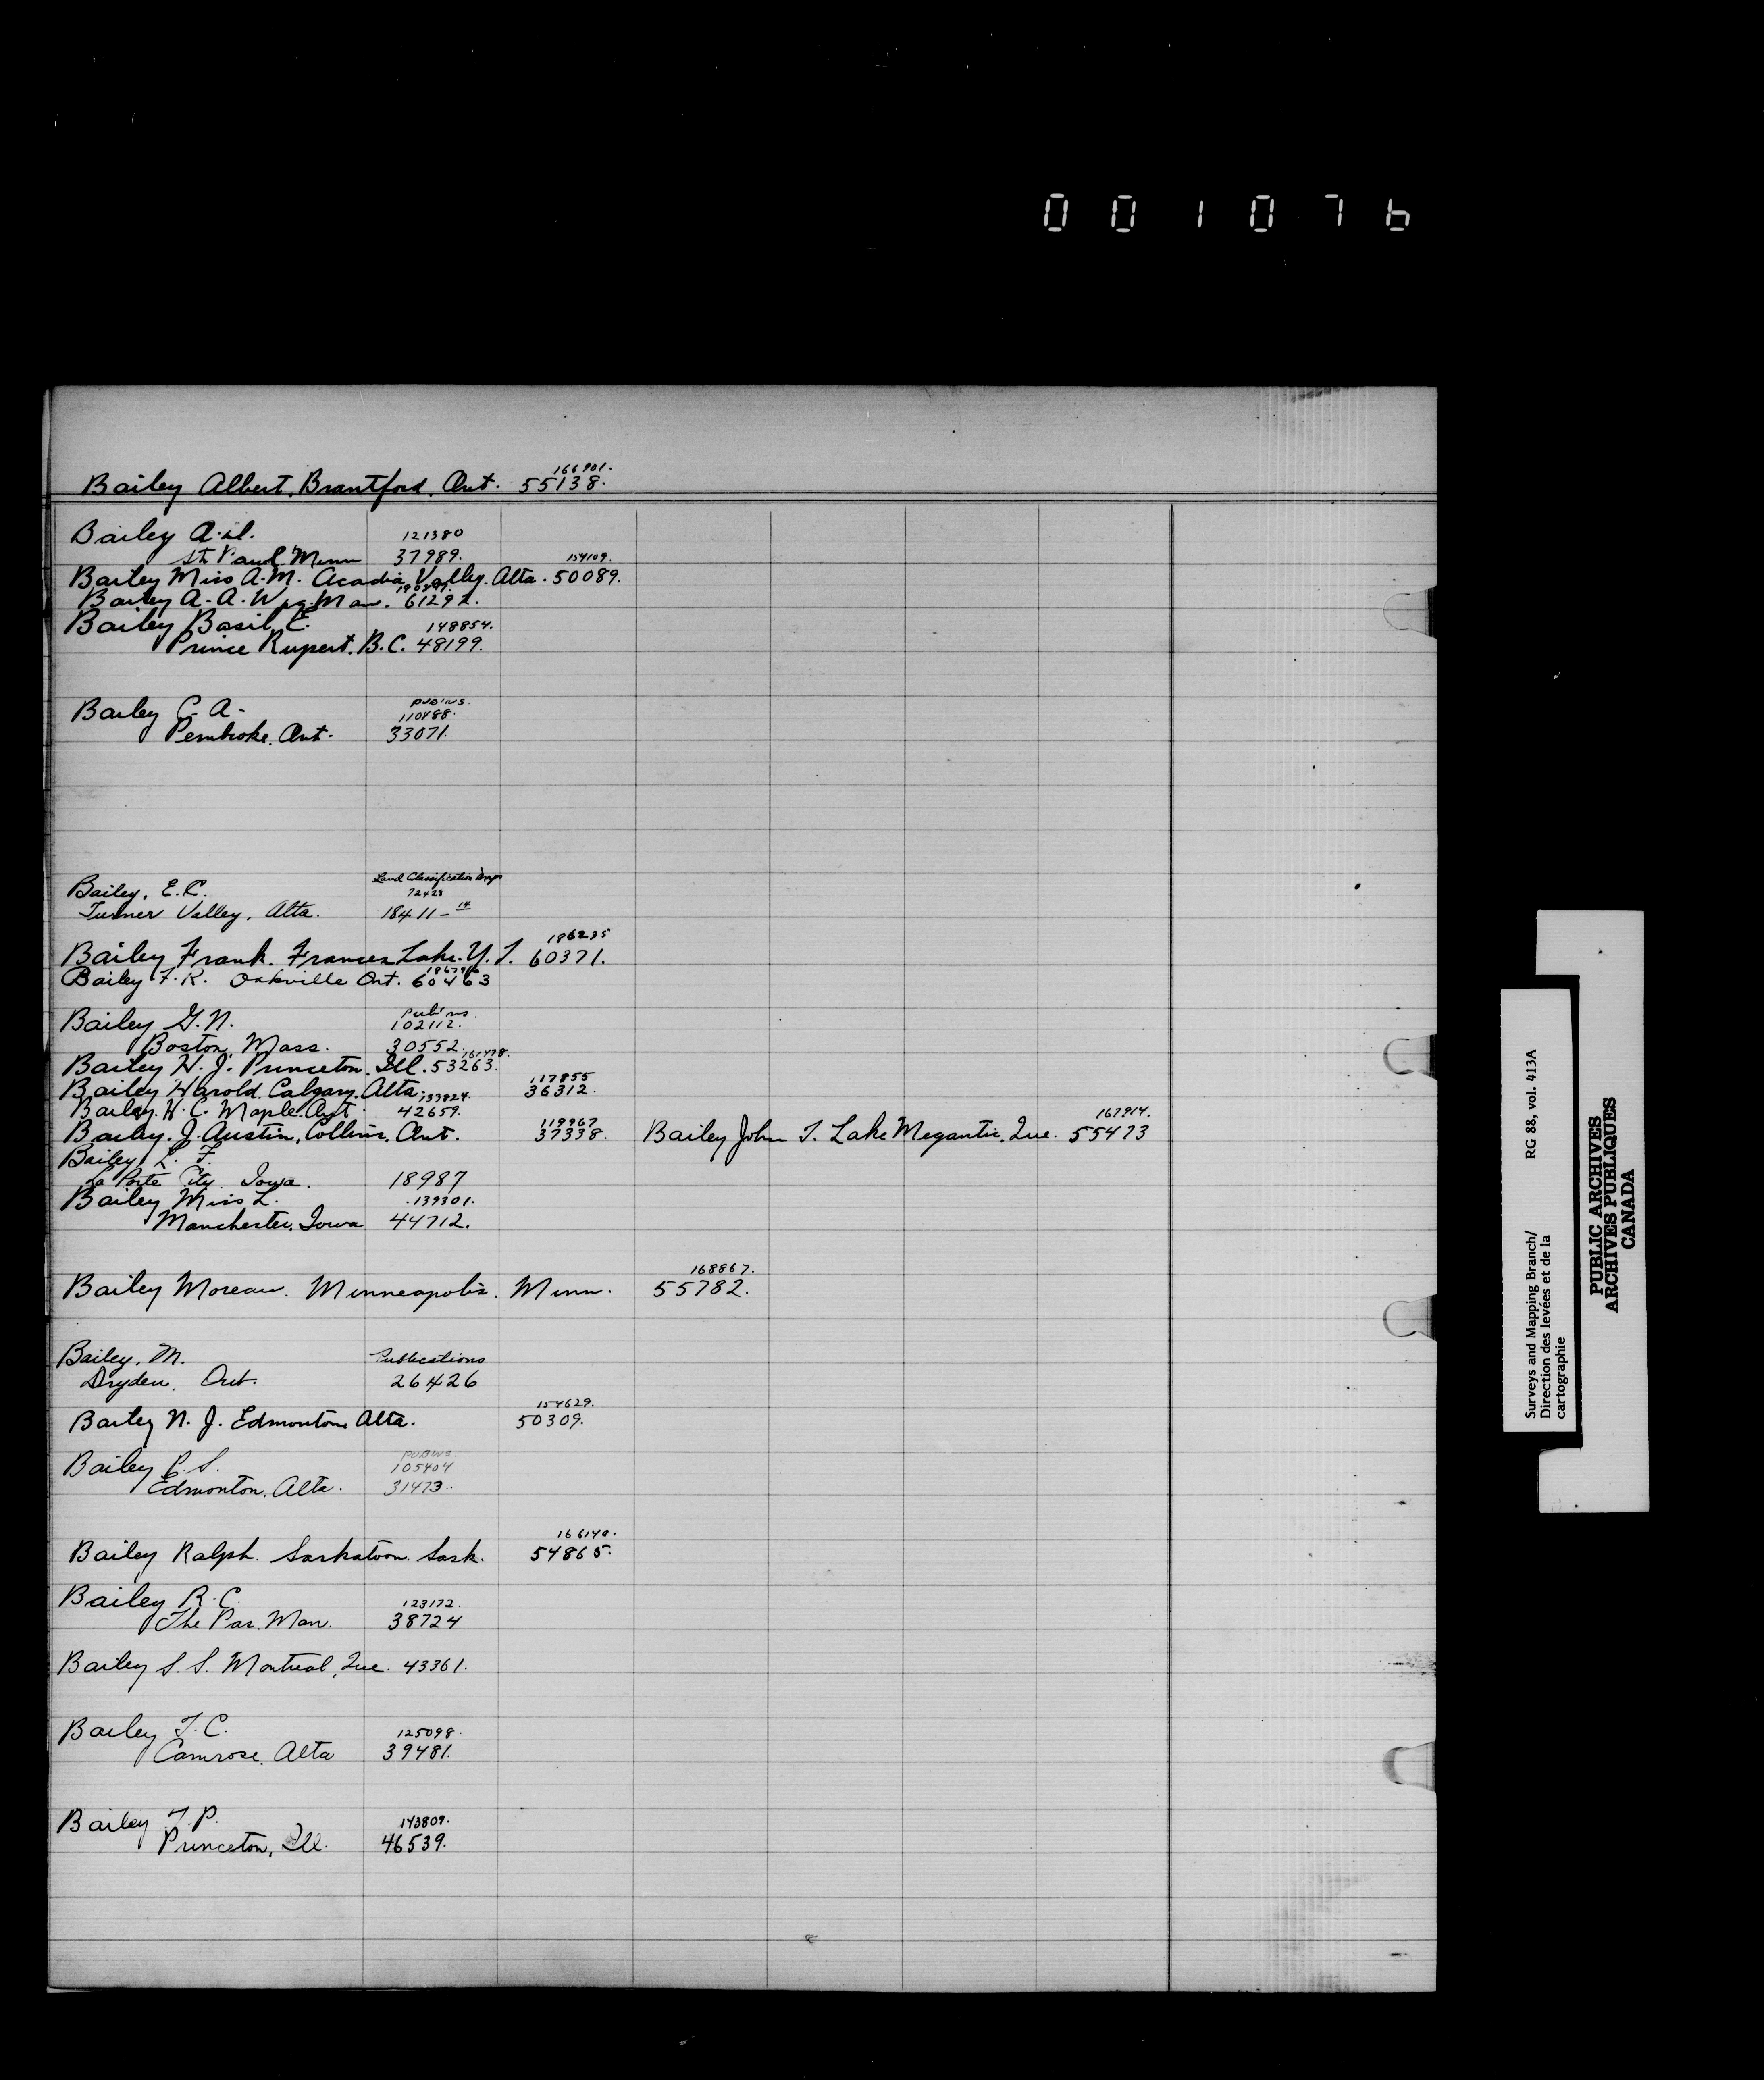 001076
166901.
Bailey Albert, Brantford, Ont. 55138.
Bailey A. 121380
St Paul Minn 37989. 154109.
Bailey Miss A.M. Acadia Valley. Alta. 50089.
Bailey A. A. Wpg. Man. 61292.
Bailey Basil E. 148854.
Prince Rupert. B.C. 48199.
Pub'ns.
Bailey C. A. 110488.
Pembroke. Ont. 33071.
Land Classification Maps
Bailey, E.C. 72428
Turner Valley, Alta. 18411-14
186235
Bailey Frank. Frances Lake. Y.T. 60371.
Bailey F.K. Oakville Ont. 60463
Pub'ns.
Bailey G.N. 102112.
Boston, Mass. 30552.
161478.
Bailey H. J. Princeton. Ill. 53263.
117855
Bailey Harold. Calgary. Alta. 36312.
133824.
Bailey. H. C. Maple. Ont. 42659.
119967 167914.
Bailey. J. Austin, Collins, Ont. 37338. Bailey John T. Lake Megantic, Que. 55473
Bailey L. F.
La Porte City Iowa. 18987
Bailey Miss L. 139301.
Manchester, Iowa 44712.
168867.
Bailey Moreau. Minneapolis. Minn. 55782.
Bailey. M. Publications
Dryden, Ont. 26426
154629.
Bailey N. J. Edmonton Alta. 50309.
Pub'ns.
Bailey P. S. 105404
Edmonton. Alta. 31473.
166140.
Bailey Ralph. Saskatoon. Sask. 54865.
Bailey R. C. 123172.
The Pas. Man. 38724
Bailey S. S. Montreal, Que. 43361.
Bailey T. C. 125098.
Camrose. Alta 39481.
Bailey T. P. 143809.
Princeton, Ill. 46539.
Surveys and Mapping Branch/ RG 88, vol. 413A
Direction des levées et de la
cartographie
PUBLIC ARCHIVES
ARCHIVES PUBLIQUES
CANADA